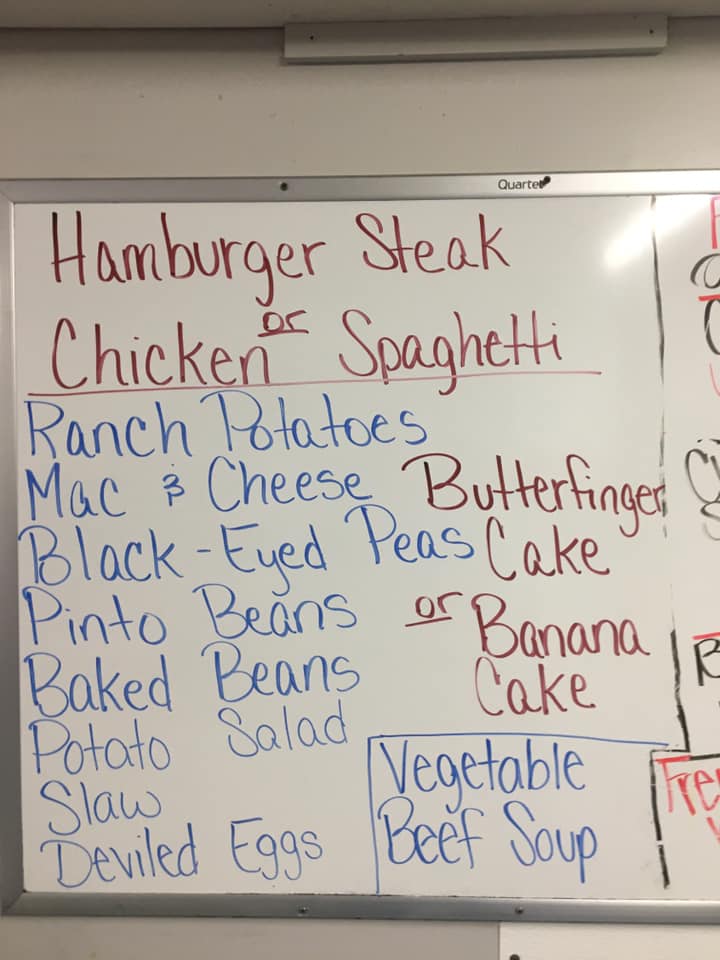 Quartet
Hamburger Steak
or
Chicken Spaghetti
Ranch Potatoes
Mac & Cheese
Black-Eyed Peas
Pinto Beans
Baked Beans
Potato Salad
Slaw
Deviled Eggs
Butterfinger
Cake
or Banana
Cake
Vegetable
Beef Soup